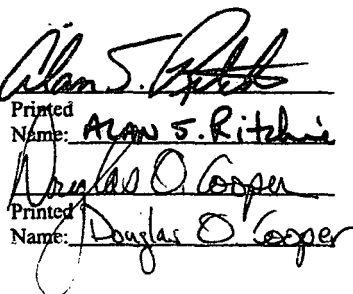 Alan S. Ritchie
Printed
Name: ALAN S. Ritchie
Douglas O. Cooper
Printed
Name: Douglas O Cooper